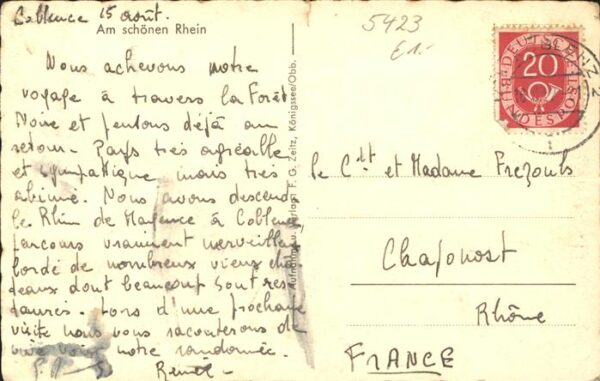 Coblence 15 Août.
Am schönen Rhein
5423
E1.-
Nous achevons notre
voyage à travers la Forêt
Noire et pensons déjà au
retour - Pays très agréable
et sympathique mais très
abimé. Nous avons descendu
le Rhin de Mayence à Coblence,
parcours vraiment merveilleux
bordé de nombreux vieux châ
teaux dont beaucoup sont res
taurés. Lors d'une prochaine
visite nous vous raconterons de
vive voix notre randonnée.
Aufnahme u. Verlag F. G. Zeitz, Königssee/Obb.
DEUTSCHE BUNDESPOST
20
le Cdt et Madame Frezouls
Chaponost
Rhône
FRANCE